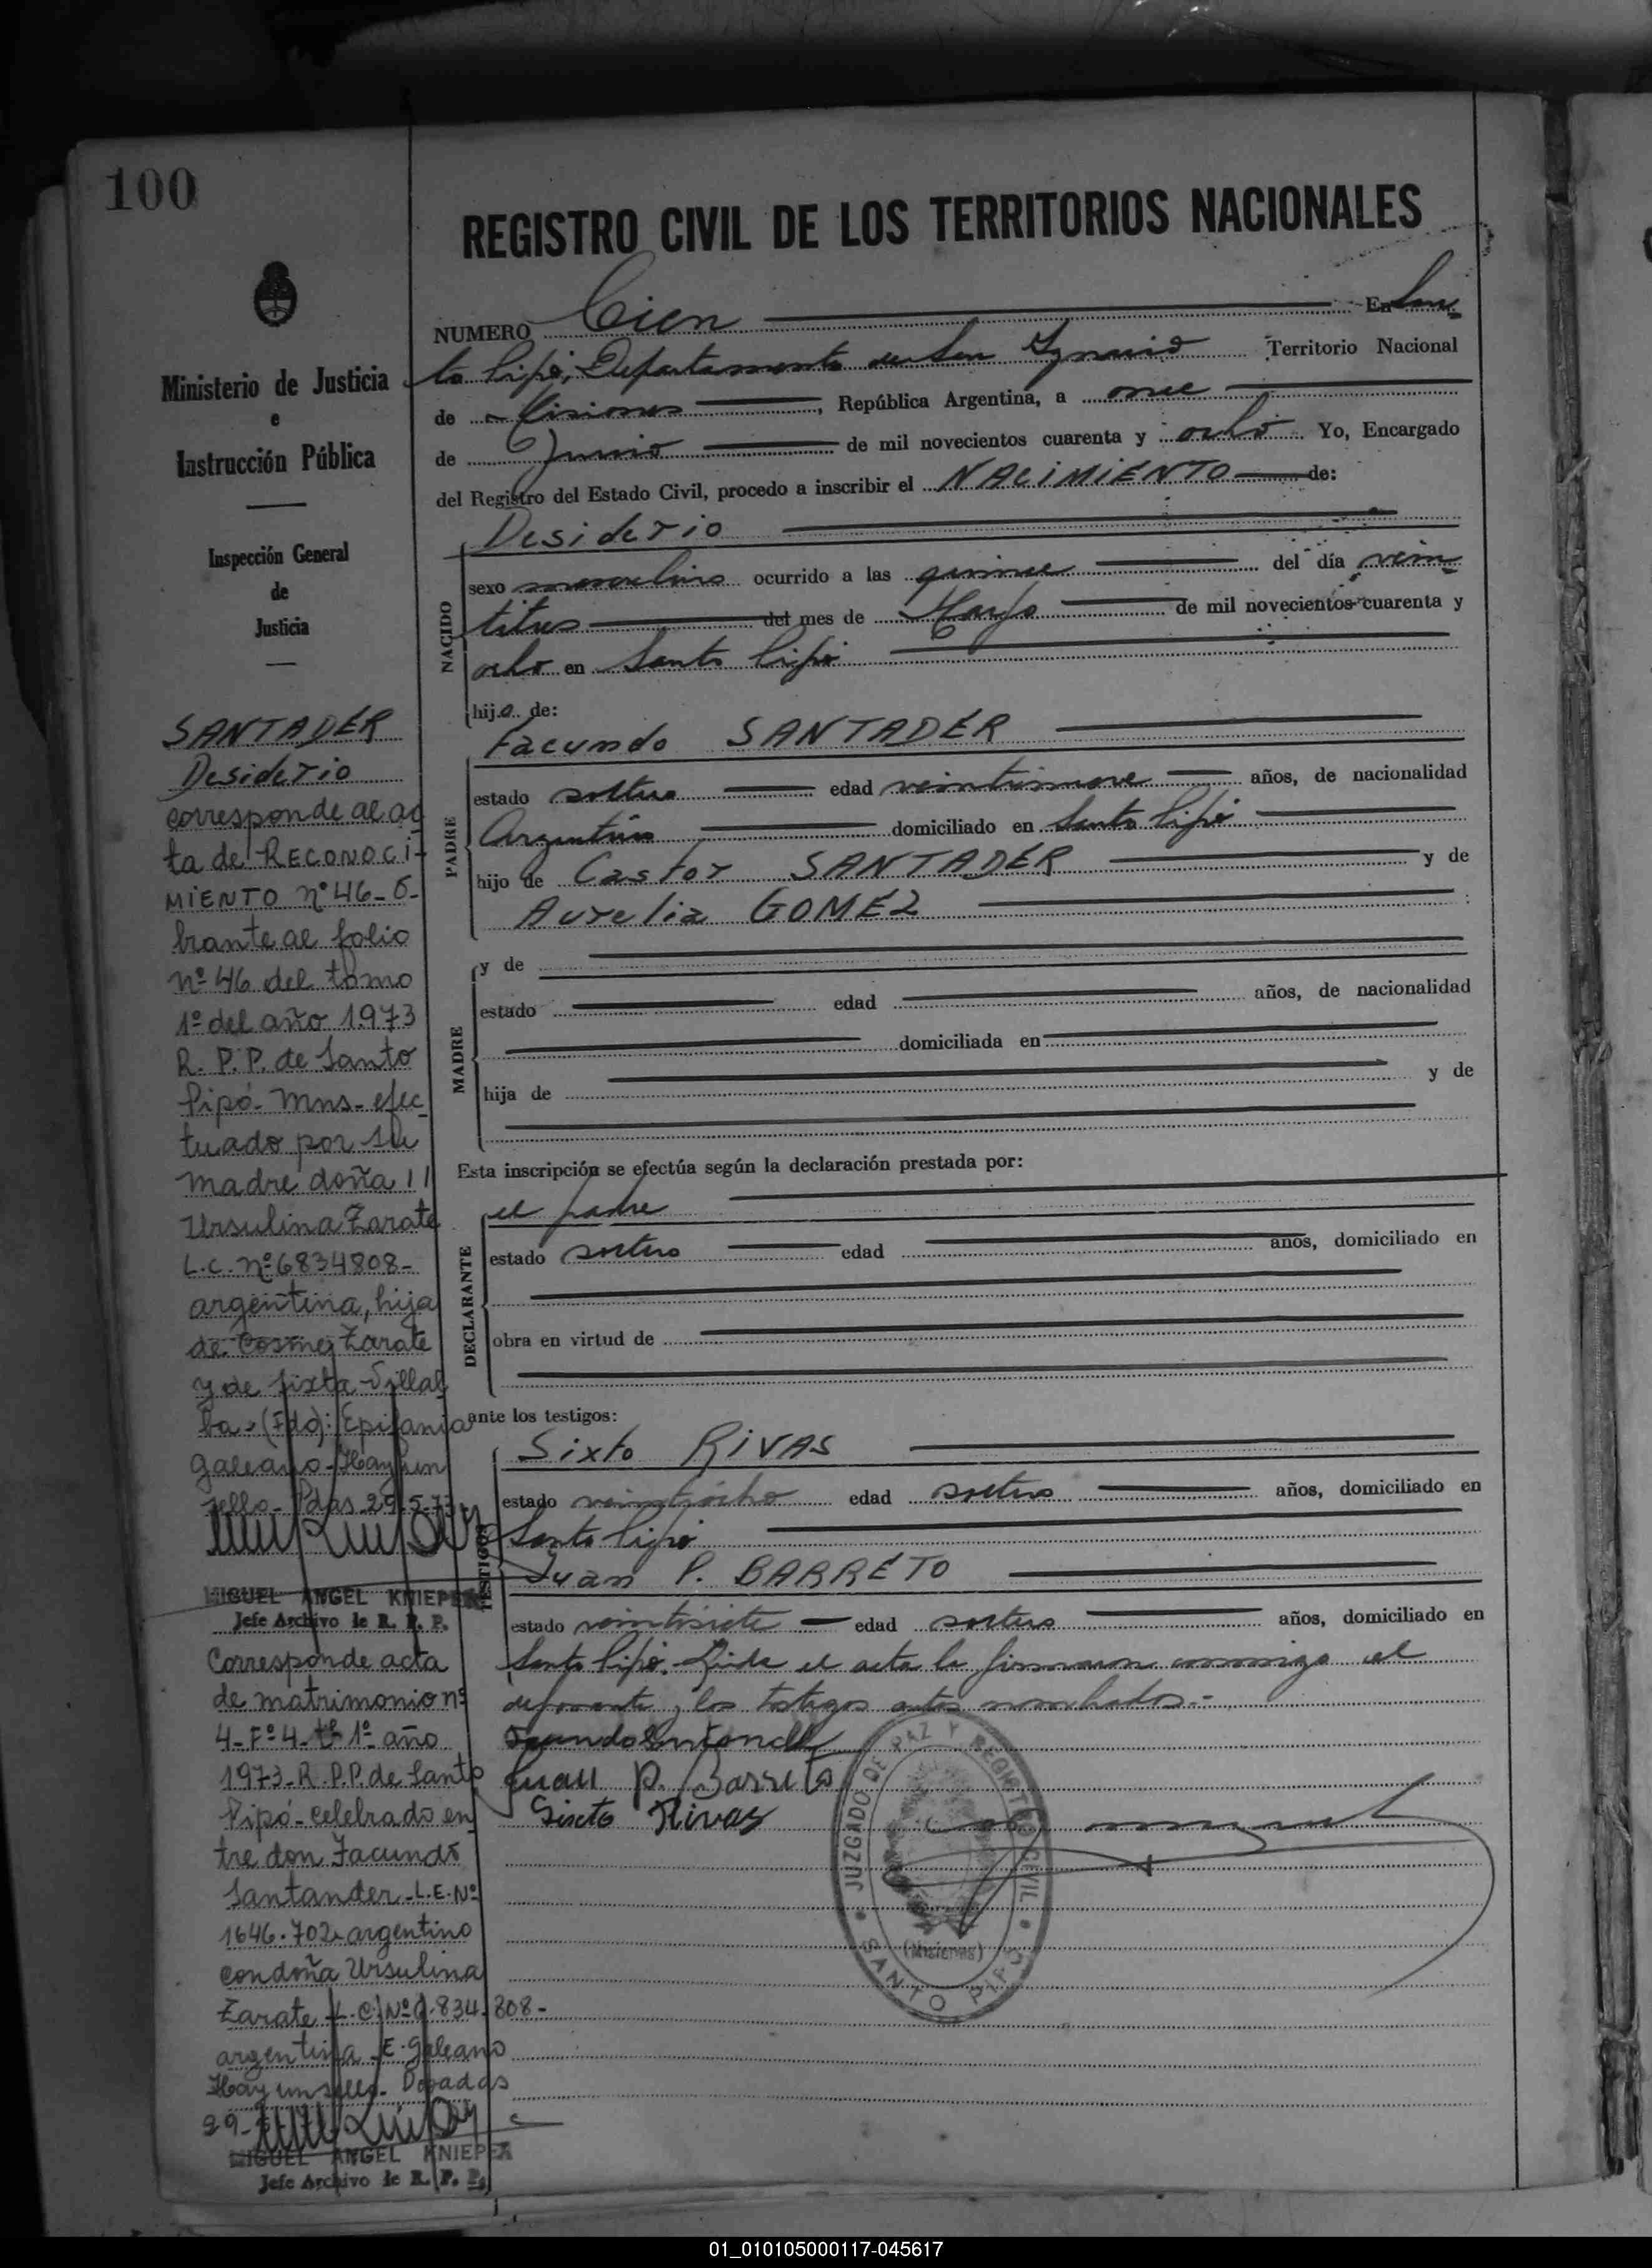 100
REGISTRO CIVIL DE LOS TERRITORIOS NACIONALES
Ministerio de Justicia
e
Instrucción Pública
Inspección General
de
Justicia
SANTADER
Desiderio
corresponde al ac
ta de RECONOCI-
MIENTO nº 46-o-
brante al folio
nº 46 del tomo
1º del año 1973
R. P. P. de Santo
Pipó- Mns- efec
tuado por su
madre doña
Ursulina Zarate
L.C. nº 6834808-
argentina, hija
de Cosme Zarate
y de Sixta Villal
ba-(Fdo): Epifania
Galeano-Hay un
sello-Pdas 29-5-73
MIGUEL ANGEL KNIEPER
Jefe Archivo de R. P. P.
Corresponde acta
de matrimonio nº
4-Fº 4-tº 1º año
1973-R.P.P. de Santo
Pipó-celebrado en
tre don Facundo
Santander-L.E.Nº
1646.702 argentino
con doña Ursulina
Zarate L.C. Nº 6.834.808-
argentina E. Galeano
Hay un sello- Posadas
MIGUEL ANGEL KNIEPER
Jefe Archivo de R. P. P.
NUMERO Cien En San
to Pipó, Departamento de San Ignacio Territorio Nacional
de Misiones, República Argentina, a once
de Junio de mil novecientos cuarenta y ocho Yo, Encargado
del Registro del Estado Civil, procedo a inscribir el NACIMIENTO de:
NACIDO
Desiderio
sexo masculino ocurrido a las quince del día vein
titres del mes de Marzo de mil novecientos cuarenta y
ocho en Santo Pipó
hijo de:
PADRE
Facundo SANTADER
estado soltero edad veintinueve años, de nacionalidad
Argentina domiciliado en Santo Pipó
hijo de Castor SANTADER y de
Aurelia GOMEZ
MADRE
y de
estado edad años, de nacionalidad
domiciliada en
hija de y de
Esta inscripción se efectúa según la declaración prestada por:
DECLARANTE
el padre
estado soltero edad años, domiciliado en
obra en virtud de
ante los testigos:
TESTIGOS
Sixto RIVAS
estado veintiocho edad soltero años, domiciliado en
Santo Pipó
Juan P. BARRETO
estado veintisiete edad soltero años, domiciliado en
Santo Pipó. Leida el acta la firmaron conmigo el
deponente y los testigos antes nombrados.-
Juan P. Barreto
Sixto Rivas
JUZGADO DE PAZ Y REGISTRO CIVIL
(Misiones)
SANTO PIPÓ
01_010105000117-045617